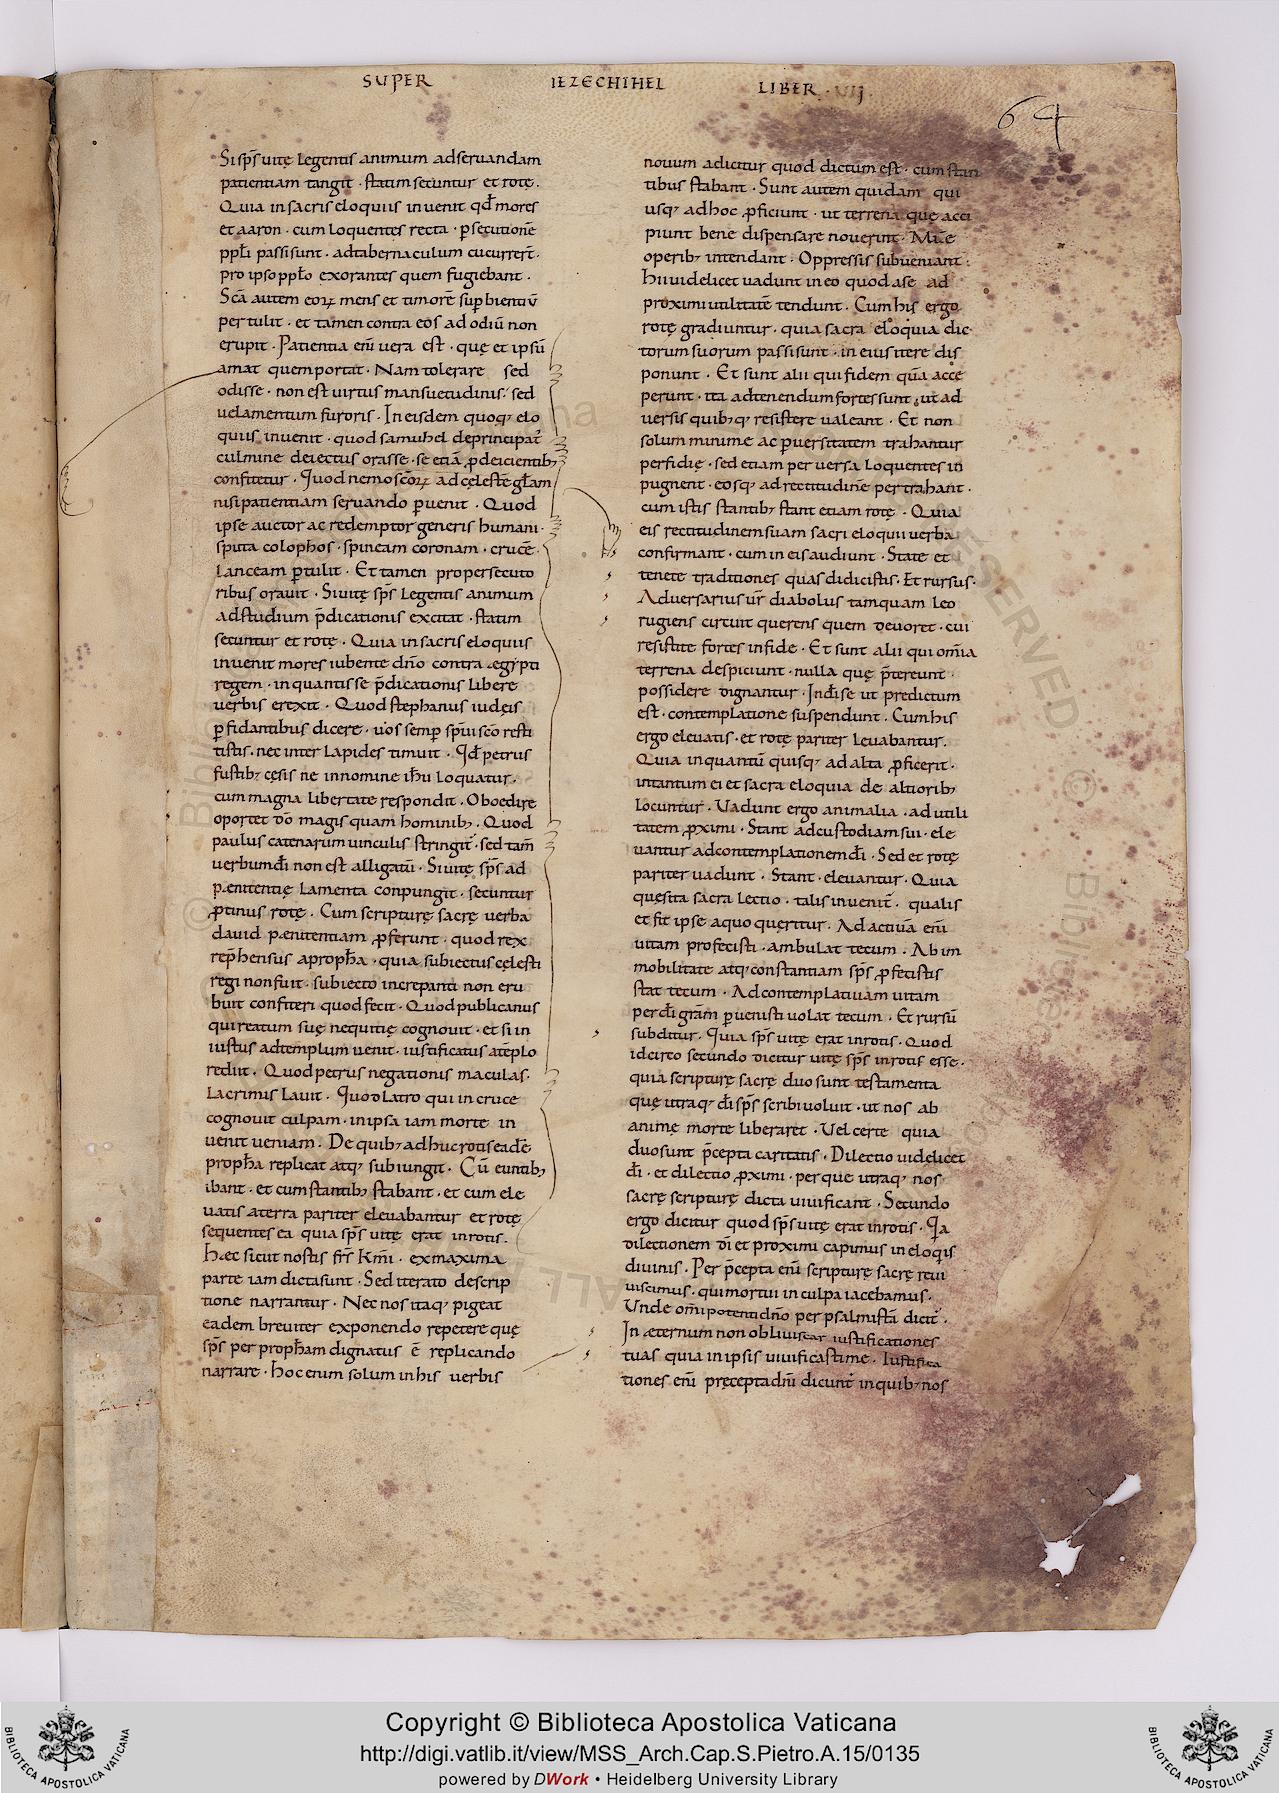 SUPER IEZECHIHEL LIBER · VII
64
Si sp̄s uitę legentis animum ad seruandam
patientiam tangit · statim secuntur et rotę ·
Quia in sacris eloquiis inuenit qđ mores
et aaron · cum loquentes recta · psecutionē
ppłi passi sunt · ad tabernaculum cucurrer̄t ·
pro ipso ppło exorantes quem fugiebant ·
Scā autem eoꝝ mens et timorē supbientiū
pertulit · et tamen contra eos ad odiū non
erupit · Patientia eni̅ uera est · quę et ipsū
amat quem portat · Nam tolerare sed
odisse · non est uirtus mansuetudinis · sed
uelamentum furoris · In eisdem quoq; elo
quiis inuenit · quod samuhel de principat̄
culmine deiectus orasse · se etiā ꝓ deicientib;
confitetur · Quod nemo scōꝝ ad cęlestē głam
nisi patientiam seruando puenit · Quod
ipse auctor ac redemptor generis humani ·
sputa colophos · spineam coronam · crucē ·
lanceam ptulit · Et tamen pro persecuto
ribus orauit · Si uitę sp̄s legentis animum
ad studium p̄dicationis excitat · statim
secuntur et rotę · Quia in sacris eloquiis
inuenit mores iubente dn̄o contra ægypti
regem · in quantis se p̄dicationis libere
uerbis erexit · Quod stephanus iudęis
pfidantibus dicere · uos semp sp̄ui scō resti
tistis · nec inter lapides timuit · Qđ petrus
fustib; cęsis ne in nomine ih̄u loquatur ·
cum magna libertate respondit · Oboedire
oportet dō magis quam hominib; · Quod
paulus catenarum uinculis stringit̄ · sed tam̄
uerbum dī non est alligatū · Si uitę sp̄s ad
pænitentię lamenta conpungit · secuntur
ꝓtinus rotę · Cum scripturę sacrę uerba
dauid pænitentiam ꝓferunt · quod rex
rep̄hensus a propħa · quia subiectus cęlesti
regi non fuit · subiecto increpanti non eru
buit confiteri quod fecit · Quod publicanus
qui reatum suę nequitię cognouit · et si in
iustus ad templum uenit · iustificatus a tēplo
rediit · Quod petrus negationis maculas ·
lacrimis lauit · Quod latro qui in cruce
cognouit culpam · in ipsa iam morte in
uenit ueniam · De quib; adhuc rotis eadē
propħa replicat atq; subiungit · Cū euntib;
ibant · et cum stantib; stabant · et cum ele
uatis a terra pariter eleuabantur et rotę
sequentes ea quia sp̄s uitę erat in rotis ·
Hæc sicut nostis fr̄s km̄i · ex maxima
parte iam dicta sunt · Sed iterato descrip
tione narrantur · Nec nos itaq; pigeat
eadem breuiter exponendo repetere quę
sp̄s per propħam dignatus ē replicando
narrare · hoc enim solum in his uerbis
nouum adicitur quod dictum est · cum stan
tibus stabant · Sunt autem quidam qui
usq; ad hoc ꝓficiunt · ut terrena quę acci
piunt bene dispensare nouerint ·
operib; intendant · Oppressis subueniant :
hii uidelicet uadunt in eo quod a se ad
proximi utilitatē tendunt · Cum his ergo
rotę gradiuntur · quia sacra eloquia dic
torum suorum passi sunt · in eius itere dis
ponunt · Et sunt alii qui fidem quā acce
perunt · ita ad tenendum fortes sunt · ut ad
uersis quib;q; resistere ualeant · Et non
solum minime ac puersitatem trahantur
perfidię · sed etiam peruersa loquentes in
pugnent · eosq; ad rectitudinē pertrahant ·
cum istis stantib; stant etiam rotę · Quia
eis rectitudinem suam sacri eloquii uerba
confirmant · cum in eis audiunt · State et
tenete traditiones quas didicistis · Et rursus ·
Aduersarius ur̄ diabolus tamquam leo
rugiens circuit querens quem deuoret · cui
resistite fortes in fide · Et sunt alii qui om̄ia
terrena despiciunt · nulla quę p̄tereunt ·
possidere dignantur · In dī se ut predictum
est · contemplatione suspendunt · Cum his
ergo eleuatis · et rotę pariter leuabantur ·
Quia in quantū quisq; ad alta ꝓficerit ·
intantum ei et sacra eloquia de altiorib;
locuntur · Uadunt ergo animalia · ad utili
tatem ꝓximi · Stant ad custodiam sui · ele
uantur ad contemplationem dī · Sed et rotę
pariter uadunt · Stant · eleuantur · Quia
quesita sacra lectio · talis inuenit̄ · qualis
et fit ipse a quo queritur · Ad actiuā eni̅
uitam profecisti · ambulat tecum · Ab im
mobilitate atq; constantiam sp̄s ꝓfecistis
stat tecum · Ad contemplatiuam uitam
per dī grām puenisti uolat tecum · Et rursū
subditur · Quia sp̄s uitę erat in rotis · Quod
idcirco secundo dicitur uitę sp̄s in rotis esse ·
quia scripturę sacrę duo sunt testamenta
quę utraq; dī sp̄s scribi uoluit · ut nos ab
animę morte liberaret · Uel certe quia
duo sunt p̄cepta caritatis · Dilectio uidelicet
dī · et dilectio ꝓximi · per que utraq; nos
sacrę scripturę dicta uiuificant · Secundo
ergo dicitur quod sp̄s uitę erat in rotis · Qa
dilectionem dī et proximi capimus in eloqiis
diuinis · Per p̄cepta eni̅ scripturę sacrę reui
uiscimus · qui mortui in culpa iacebamus ·
Unde om̄ipotenti dn̄o per psalmistā dicit̄ ·
In æternum non obliuiscar iustificationes
tuas quia in ipsis uiuificasti me · Iustifica
tiones eni̅ pręcepta dn̄i dicunt̄ in quib; nos
Copyright © Biblioteca Apostolica Vaticana
http://digi.vatlib.it/view/MSS_Arch.Cap.S.Pietro.A.15/0135
powered by DWork • Heidelberg University Library
BIBLIOTECA APOSTOLICA VATICANA
BIBLIOTECA APOSTOLICA VATICANA